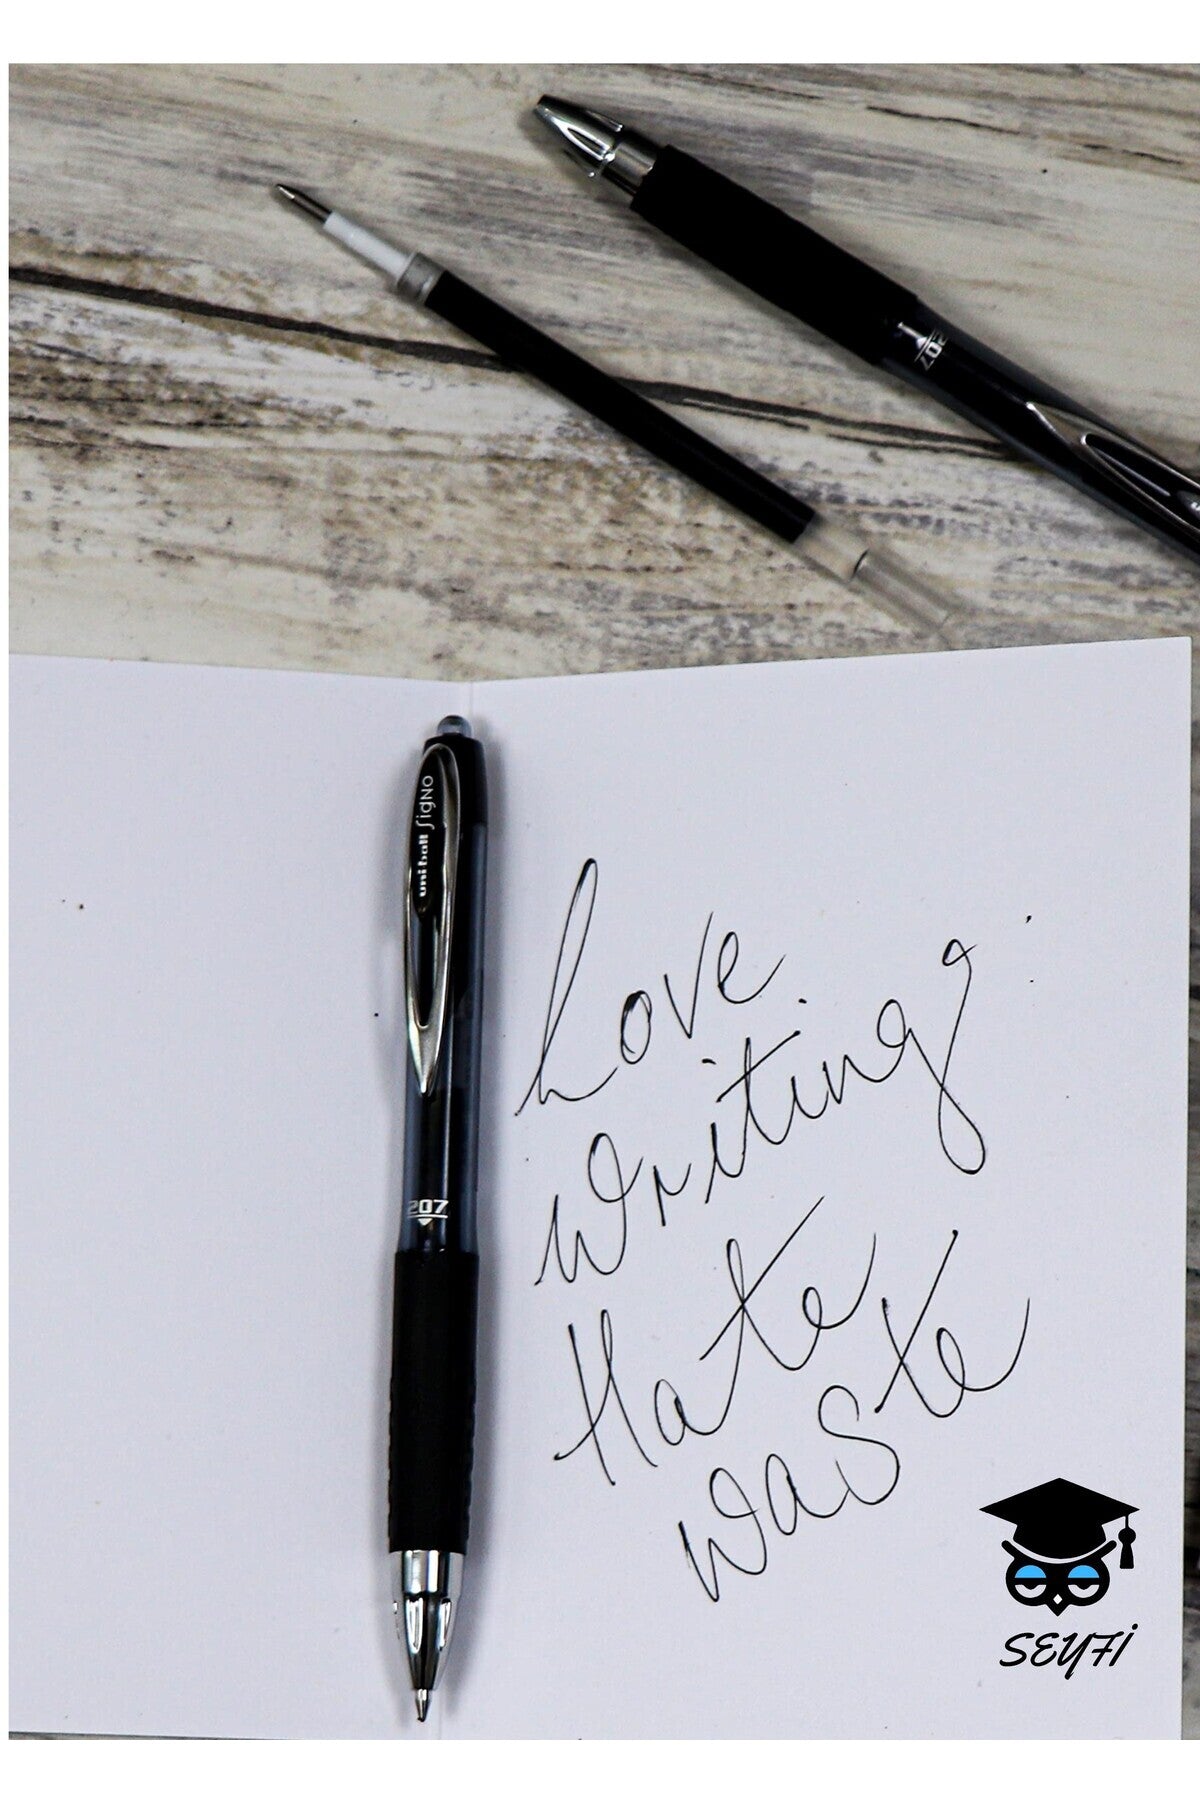 207
uni-ball SigNO
207
Love
Writing
Hate
waste
SEYFİ